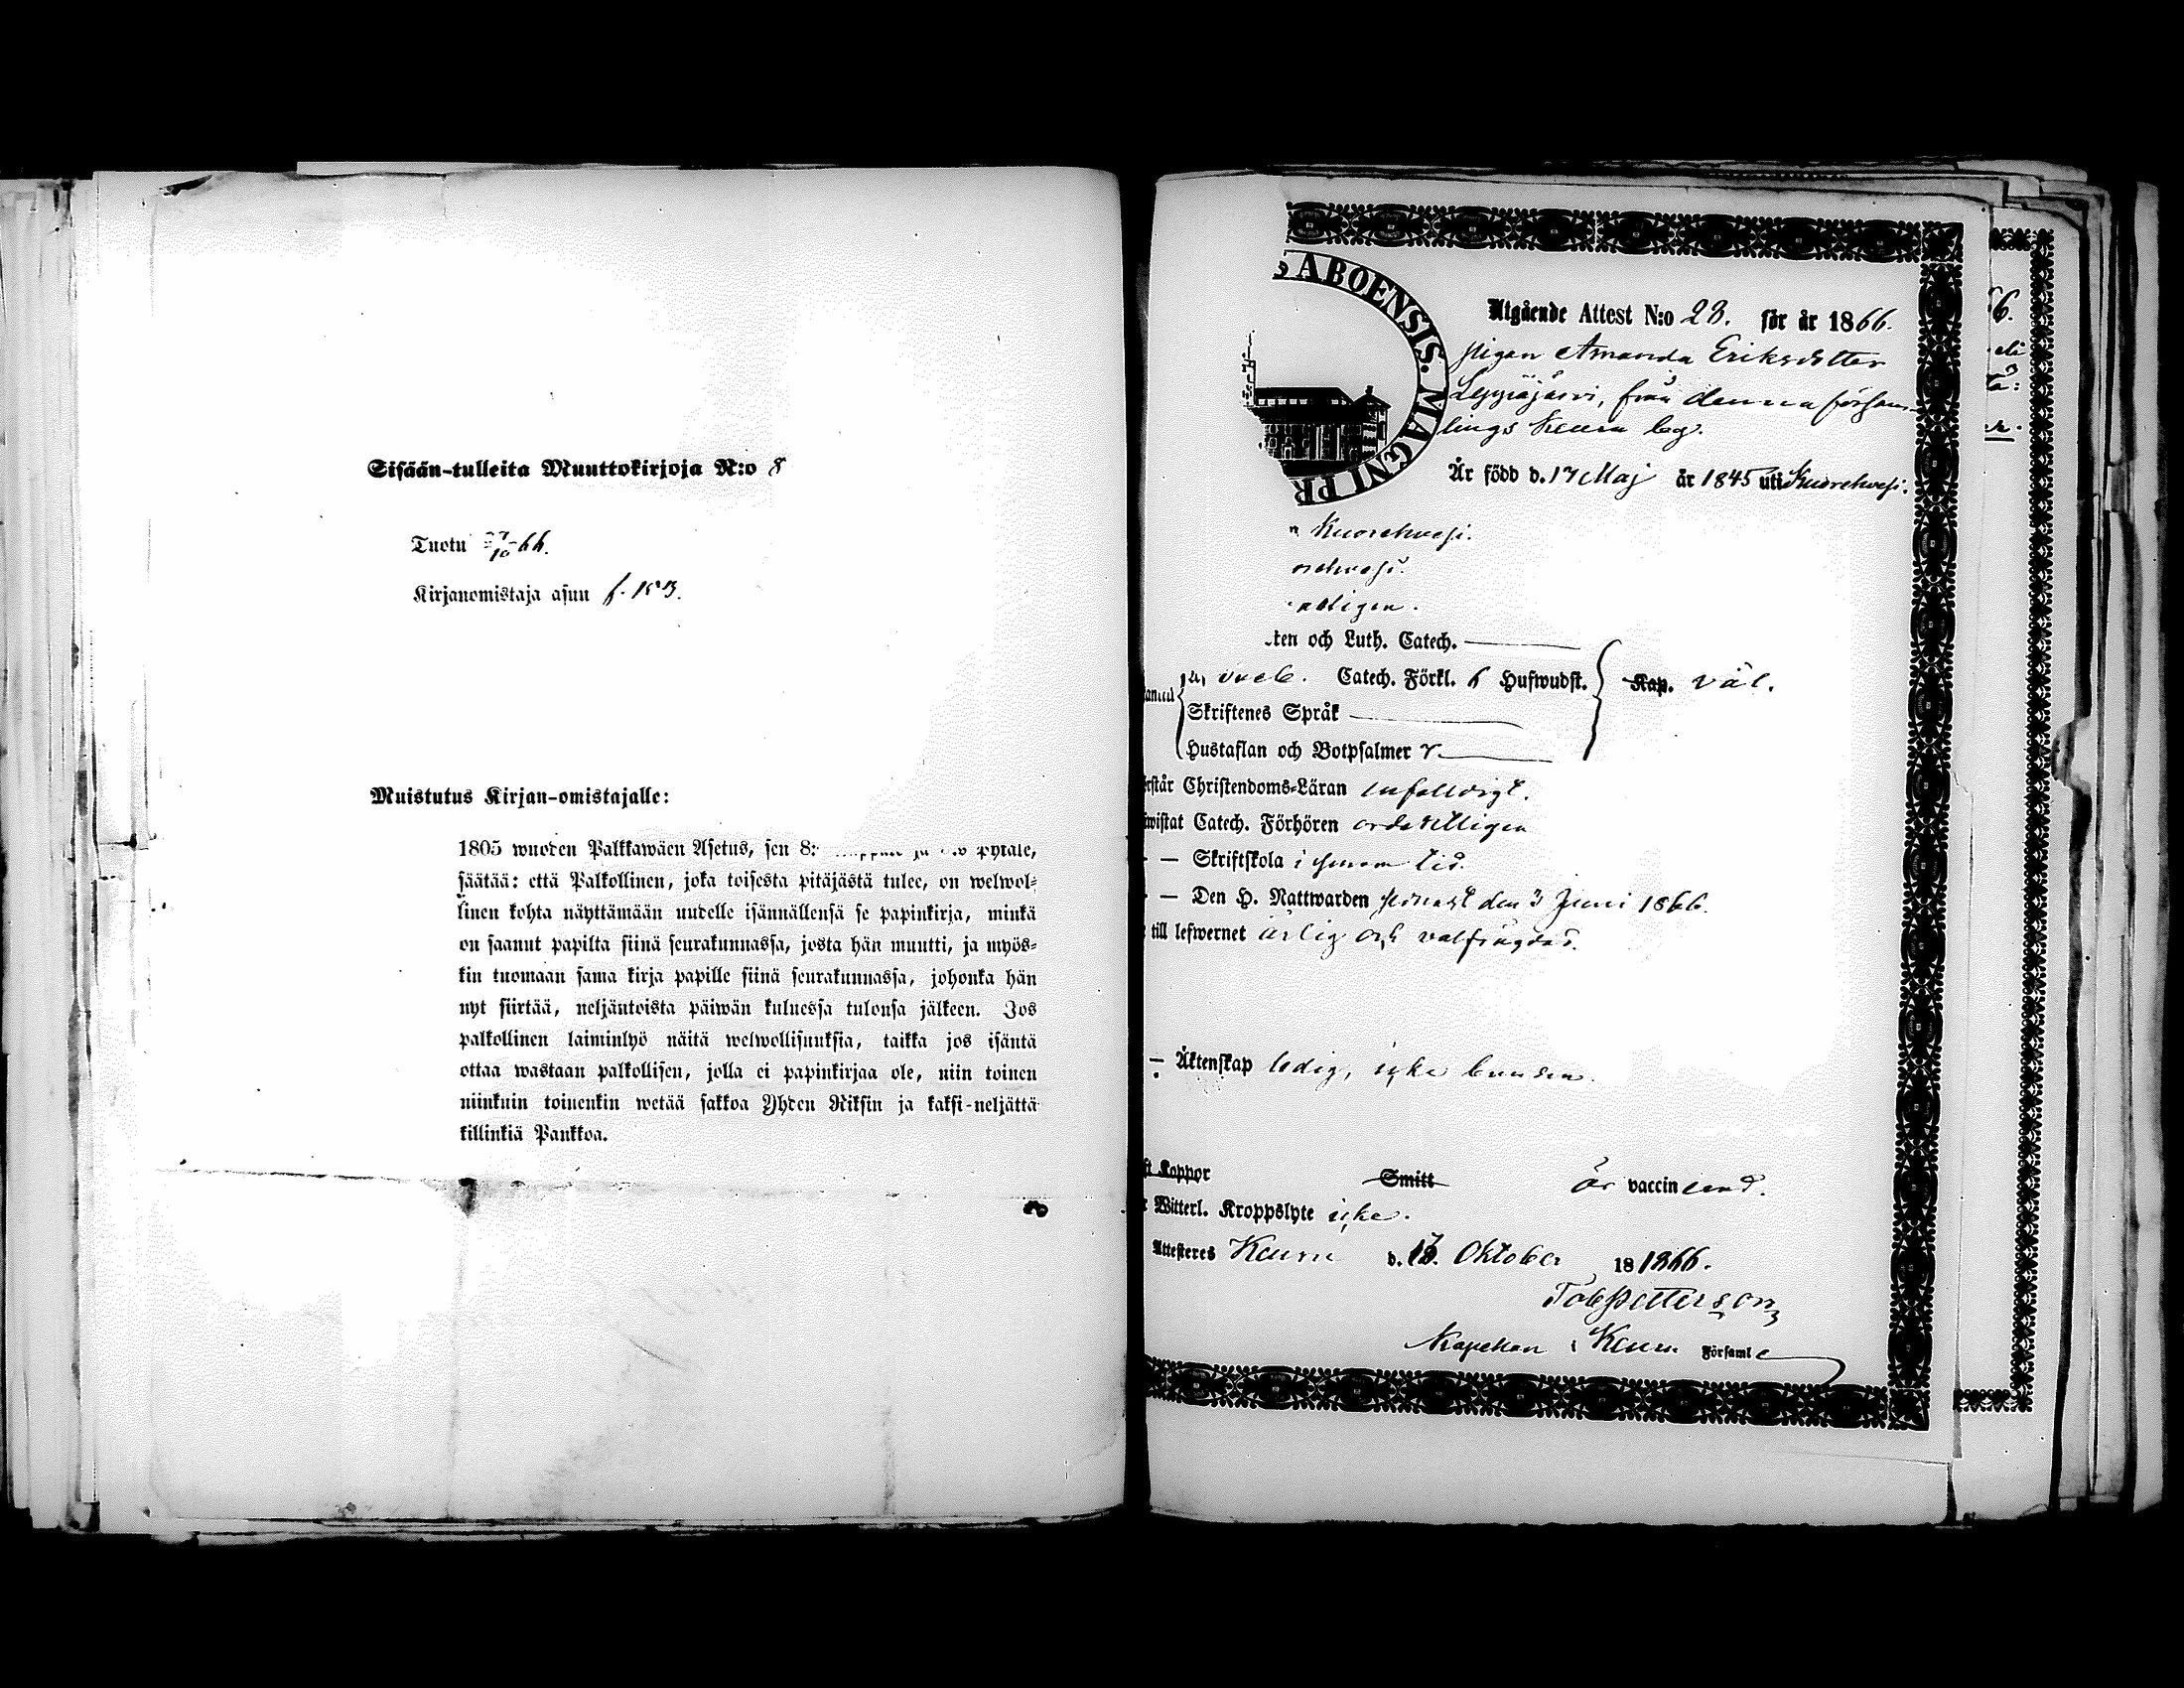 Sisään-tulleita Muuttokirjoja N:o 8
Tuotu 27/10 66.
Kirjanomistaja asuu f.
Muistutus Kirjan-omistajalle:
1805 wuoden Palkkawäen Asetus, sen 8: ja pykäle,
säätää: että Palkollinen, joka toisesta pitäjästä tulee, on welwol-
linen kohta näyttämään uudelle isännällensä se papinkirja, minkä
on saanut papilta siinä seurakunnassa, josta hän muutti, ja myös-
kin tuomaan sama kirja papille siinä seurakunnassa, johonka hän
nyt siirtää, neljäntoista päiwän kuluessa tulonsa jälkeen. Jos
palkollinen laiminlyö näitä welwollisuuksia, taikka jos isäntä
ottaa wastaan palkollisen, jolla ei papinkirjaa ole, niin toinen
niinkuin toinenkin wetää sakkoa Yhden Riksin ja kaksi-neljättä
killinkiä Pankkoa.
S ABOENSIS. MAGNI PR
Utgående Attest N:o 23. för år 1866.
pigan Amanda Eriksdotter
från denna försam-
lings Keuru by.
Är född d. 17 Maj år 1845 uti Kuorehvesi.
n Kuorehvesi.
orehvesi.
ten och Luth. Catech.
Catech. Förkl. 6 Hufwudst. Kap. väl.
Skriftenes Språk
Hustaflan och Botpsalmer
rstår Christendoms-Läran enfaldigt.
wistat Catech. Förhören ordentligen
— Skriftskola i sinom tid.
— Den H. Nattwarden senast den 3 Juni 1866.
till lefwernet ärlig och välfrägdad.
— Äktenskap ledig, icke bunden.
st Koppor Smitt Är vaccinerad.
Witterl. Kroppslyte icke.
Attesteres Keuru d. 17. Oktober 18 1866.
Tob Petterson
Kapellan i Keuru Församl